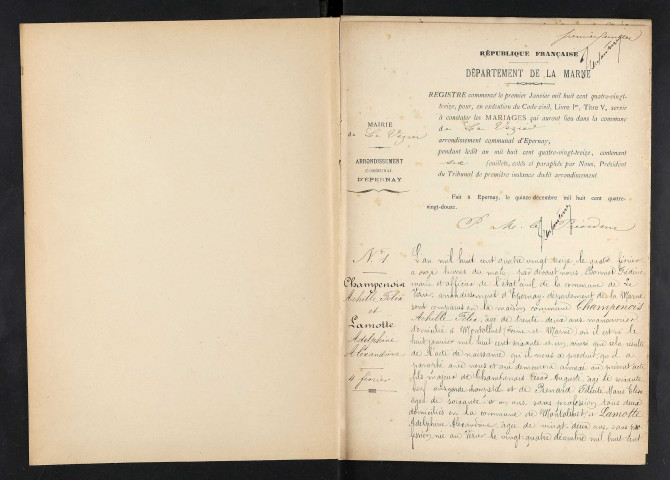 premier feuillet
RÉPUBLIQUE FRANÇAISE
DÉPARTEMENT DE LA MARNE
REGISTRE commencé le premier Janvier mil huit cent quatre-vingt-
treize, pour, en exécution du Code civil, Livre Ier, Titre V, servir
à constater les MARIAGES qui auront lieu dans la commune
de Le Vézier
arrondissement communal d'Epernay,
pendant ledit an mil huit cent quatre-vingt-treize, contenant
six feuillets, cotés et paraphés par Nous, Président
du Tribunal de première instance dudit arrondissement
Fait à Epernay, le quinze décembre mil huit cent quatre-
vingt-douze.
MAIRIE
de Le Vézier
ARRONDISSEMENT
D'ÉPERNAY
N° 1
Champenois
Achille Félix
et
Lamotte
Adelphine
Alexandrine
4 février
L'an mil huit cent quatre vingt treize le quatre février
à onze heures du matin, par devant nous,
maire et officier de l'état civil de la commune de Le
Vézier, arrondissement d'Epernay, département de la Marne
sont comparus en la maison commune Champenois
Achille Félix, âgé de trente deux ans manouvrier
domicilié à Montolivet (Seine et Marne) où il est né le
huit janvier mil huit cent soixante et un, ainsi que cela résulte
de l'acte de naissance qu'il nous a produit, qu'il a
paraphé avec nous et qui demeurera annexé au présent acte
fils majeur de Champenois Auguste, âgé de soixante
ans garde champêtre et de Renard Félicité Marie
âgée de soixante et un ans, sans profession, tous deux
domiciliés en la commune de Montolivet, & Lamotte
Adelphine Alexandrine âgée de vingt deux ans, sans pro-
fession, née au Vézier le vingt quatre décembre mil huit cent